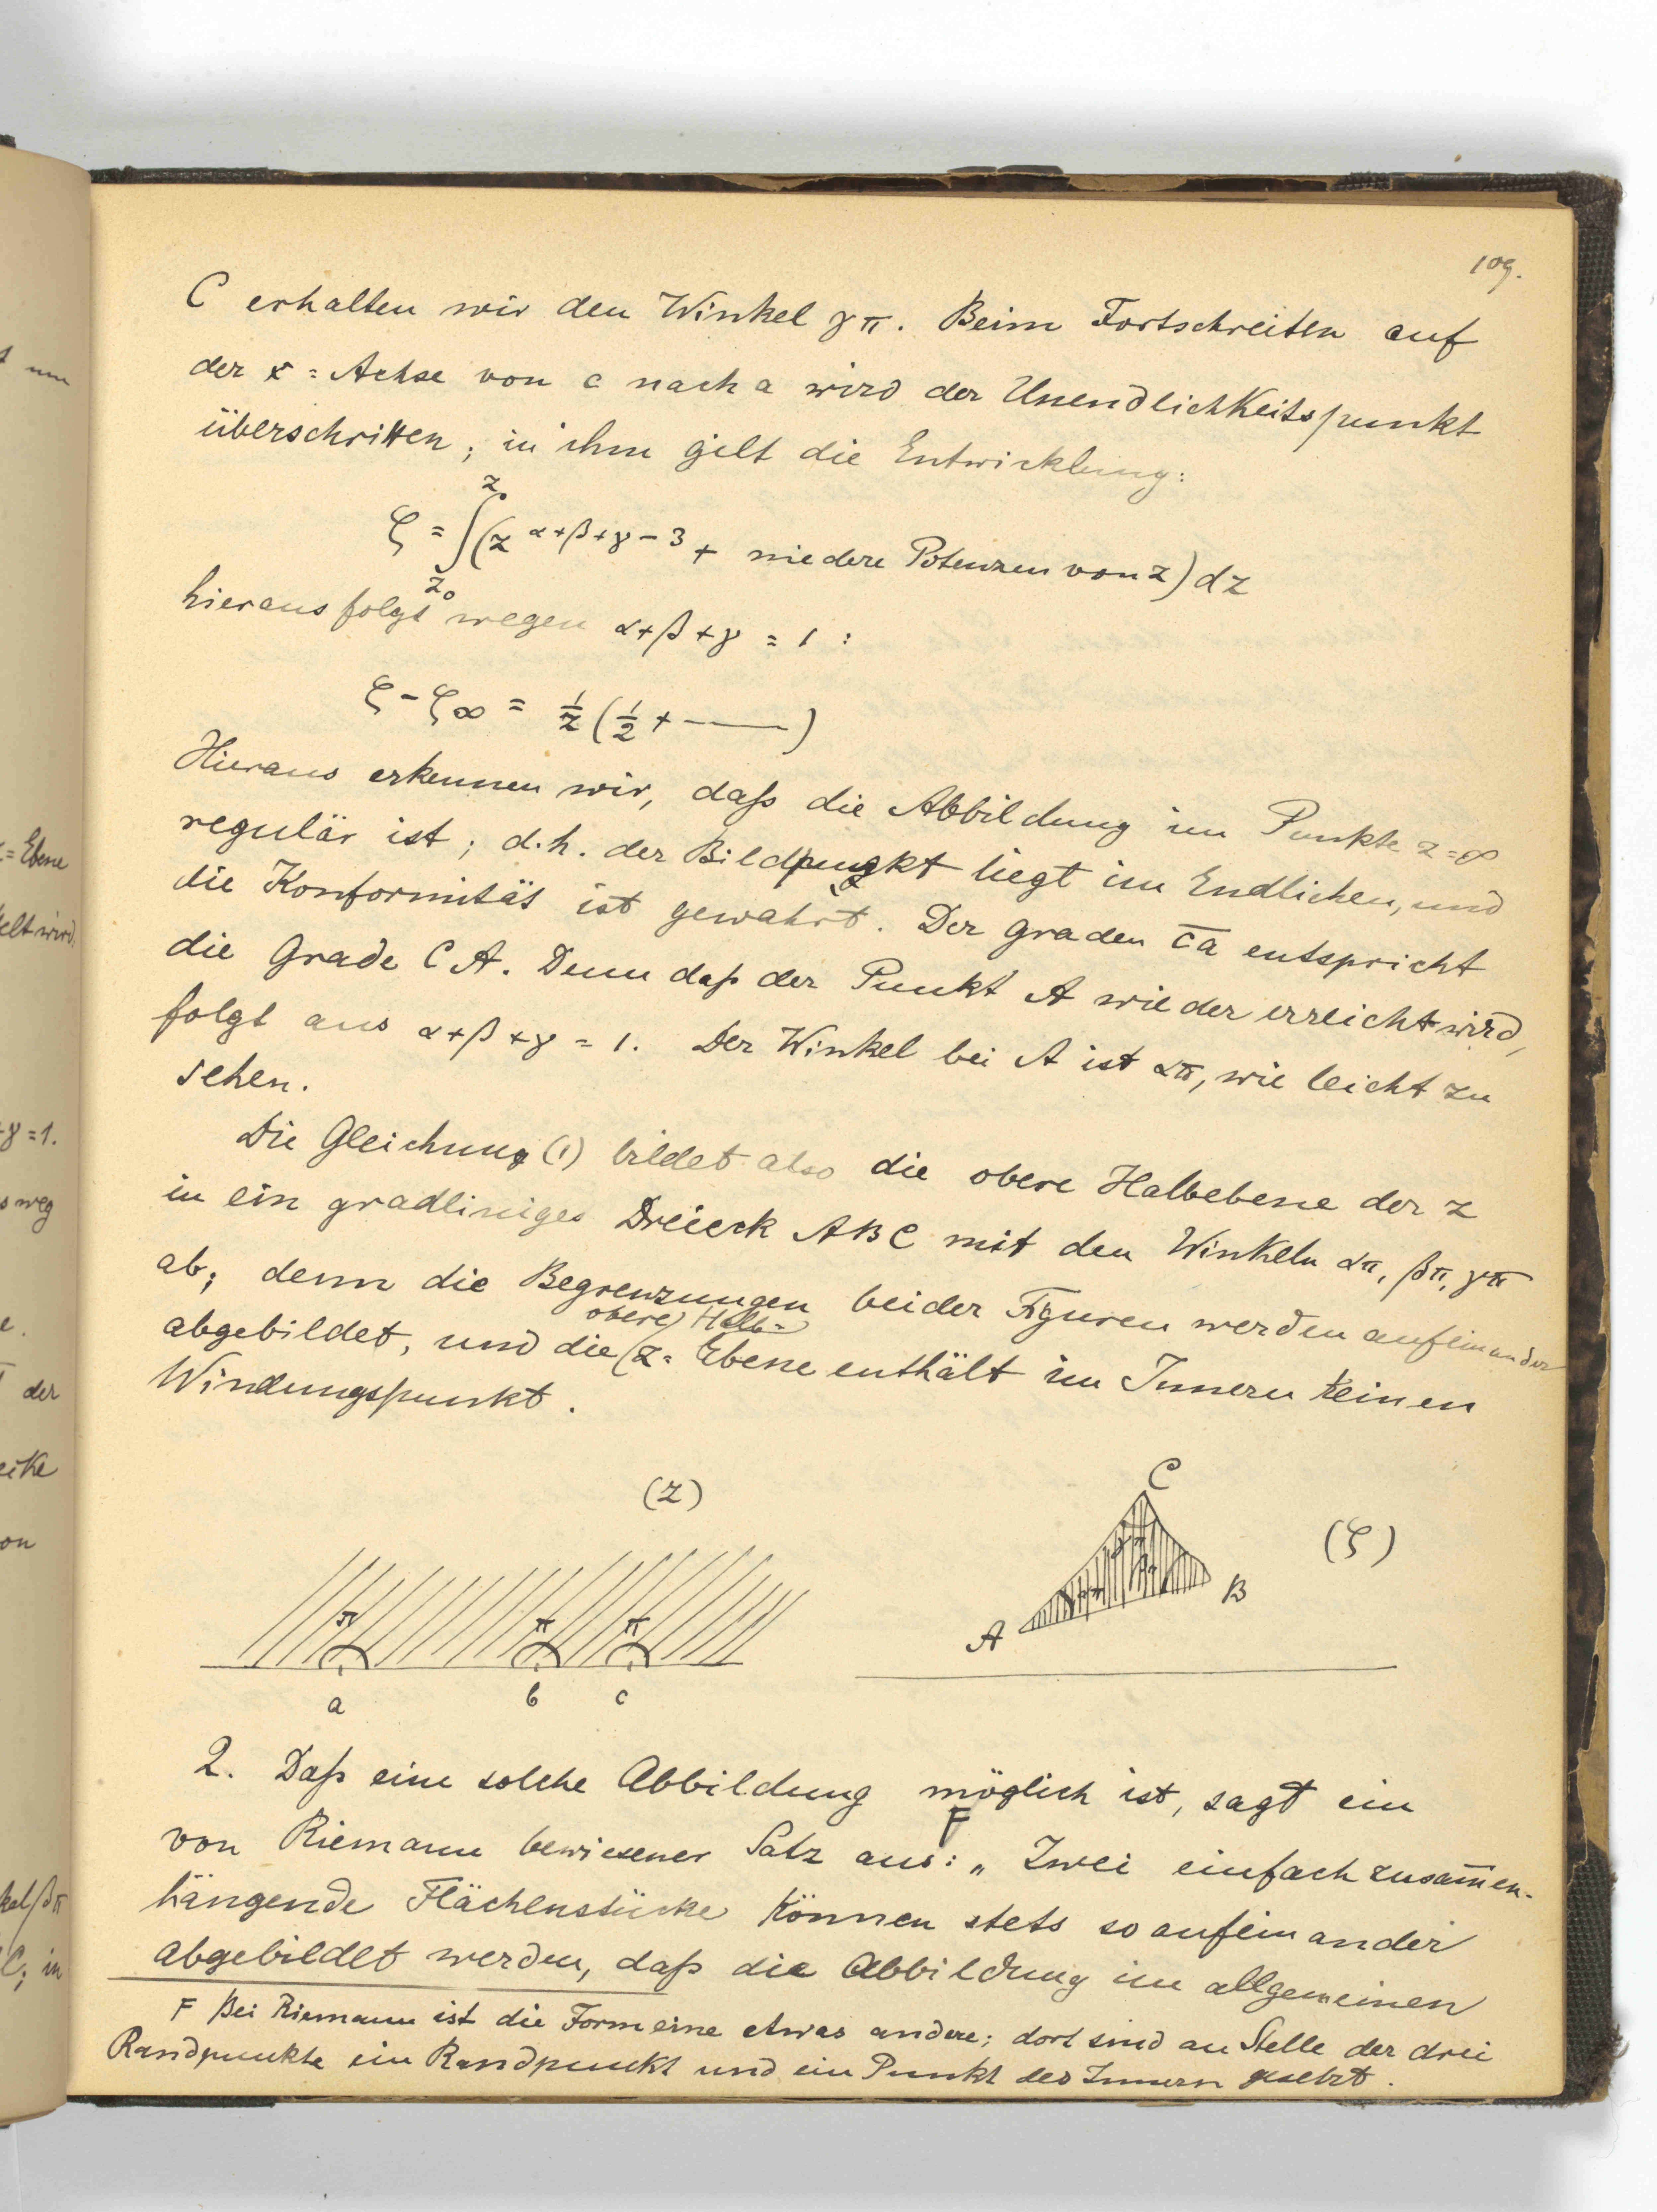 109.
C erhalten wir den Winkel γπ. Beim Fortschreiten auf
der x = Achse von c nach a wird der Unendlichkeitspunkt
überschritten; in ihm gilt die Entwicklung:
ζ = ∫_{z₀}^{z} (z^{α+β+γ-3} + niedere Potenzen von z) dz
hieraus folgt wegen α+β+γ = 1 :
ζ - ζ∞ = 1/z (1/2 + ——)
Hieraus erkennen wir, daß die Abbildung im Punkte z=∞
regulär ist; d.h. der Bildpunkt liegt im Endlichen, und
die Konformität ist gewahrt. Der graden c̅a̅ entspricht
die Grade CA. Denn daß der Punkt A wieder erreicht wird,
folgt aus α+β+γ = 1. Der Winkel bei A ist απ, wie leicht zu
sehen.
Die Gleichung (1) bildet also die obere Halbebene der z
in ein gradliniges Dreieck ABC mit den Winkeln απ, βπ, γπ
ab; denn die Begrenzungen beider Figuren werden aufeinander
obere Halb=
abgebildet, und die z = Ebene enthält im Innern keinen
Windungspunkt.
(z)
π π π
a b c
C
(ζ)
B
A
2. Daß eine solche Abbildung möglich ist, sagt ein
von Riemann bewiesener Satz F aus: „Zwei einfach zusam̅en-
hängende Flächenstücke können stets so aufeinander
abgebildet werden, daß die Abbildung im allgemeinen
F Bei Riemann ist die Form eine etwas andere; dort sind an Stelle der drei
Randpunkte ein Randpunkt und ein Punkt des Innern gesetzt.
um
= Ebene
elt wird.
+γ=1.
s weg
e.
der
eike
on
kel βπ
C; in